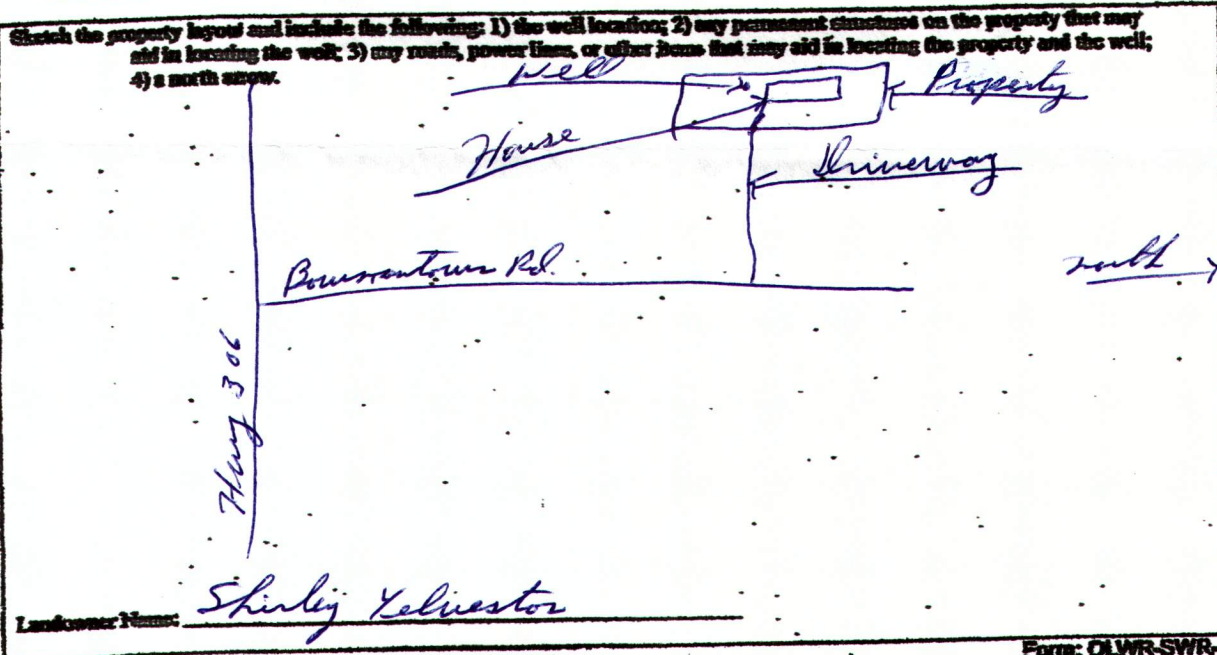 Sketch the property layout and include the following: 1) the well location; 2) any permanent structures on the property that may
aid in locating the well; 3) any roads, power lines, or other items that may aid in locating the property and the well;
4) a north arrow.
Well
Property
House
Driveway
Bowmantown Rd.
north
Hwy 306
Landowner Name: Shirley Yelvestor
Form: OLWR-SWR-